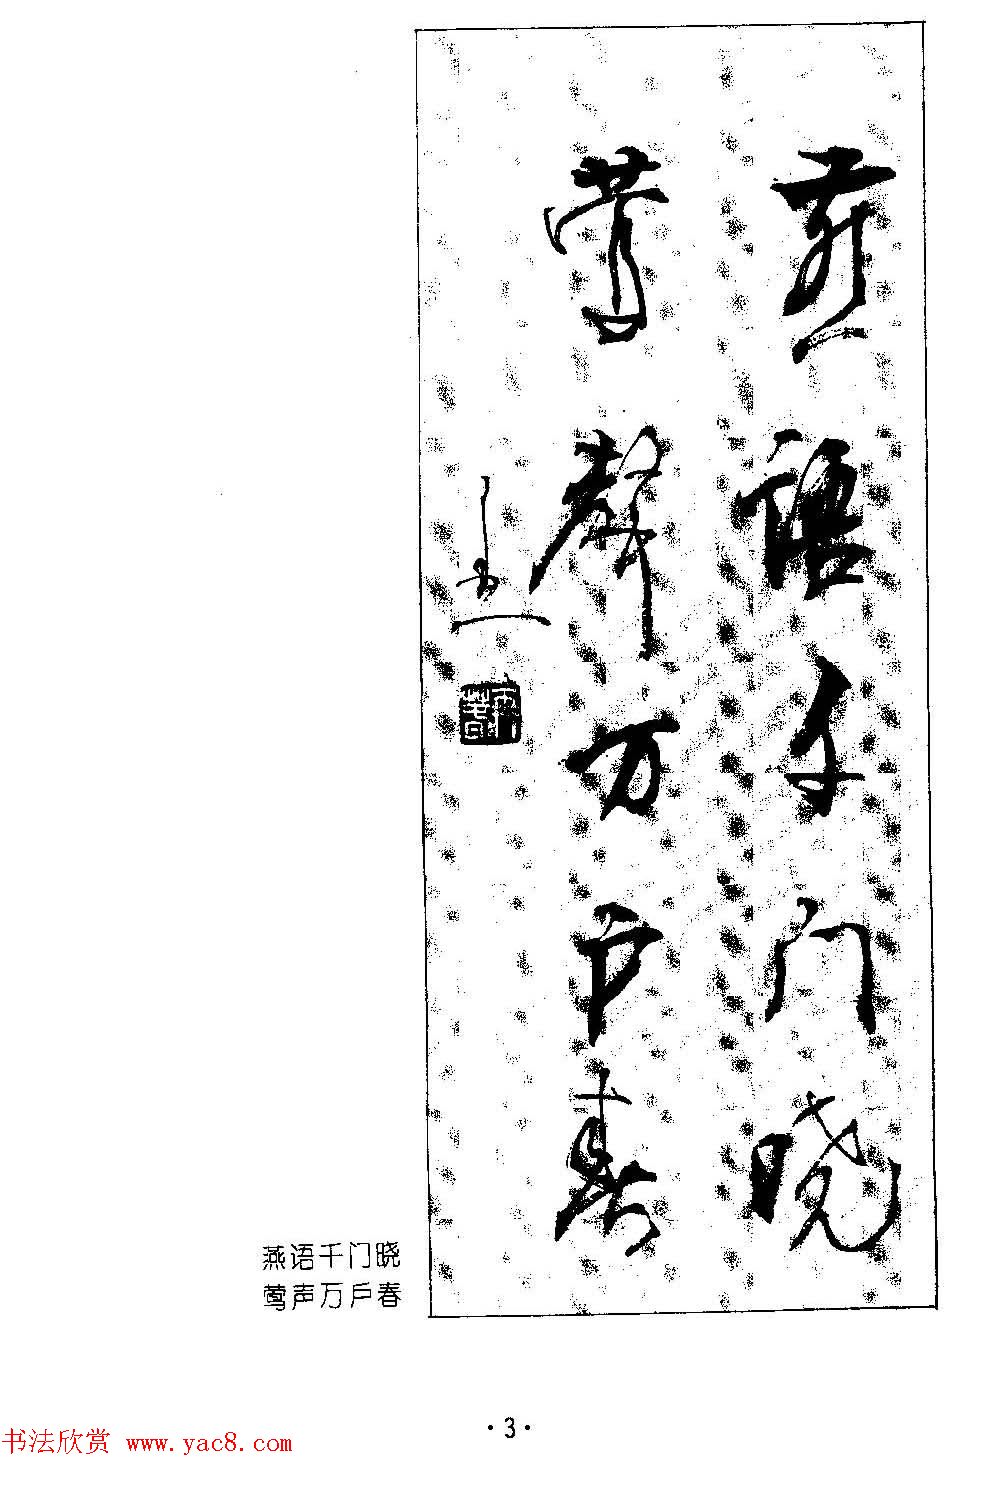 燕語千门晓
莺聲万户春
燕语千门晓
莺声万户春
·3·
书法欣赏 www.yac8.com